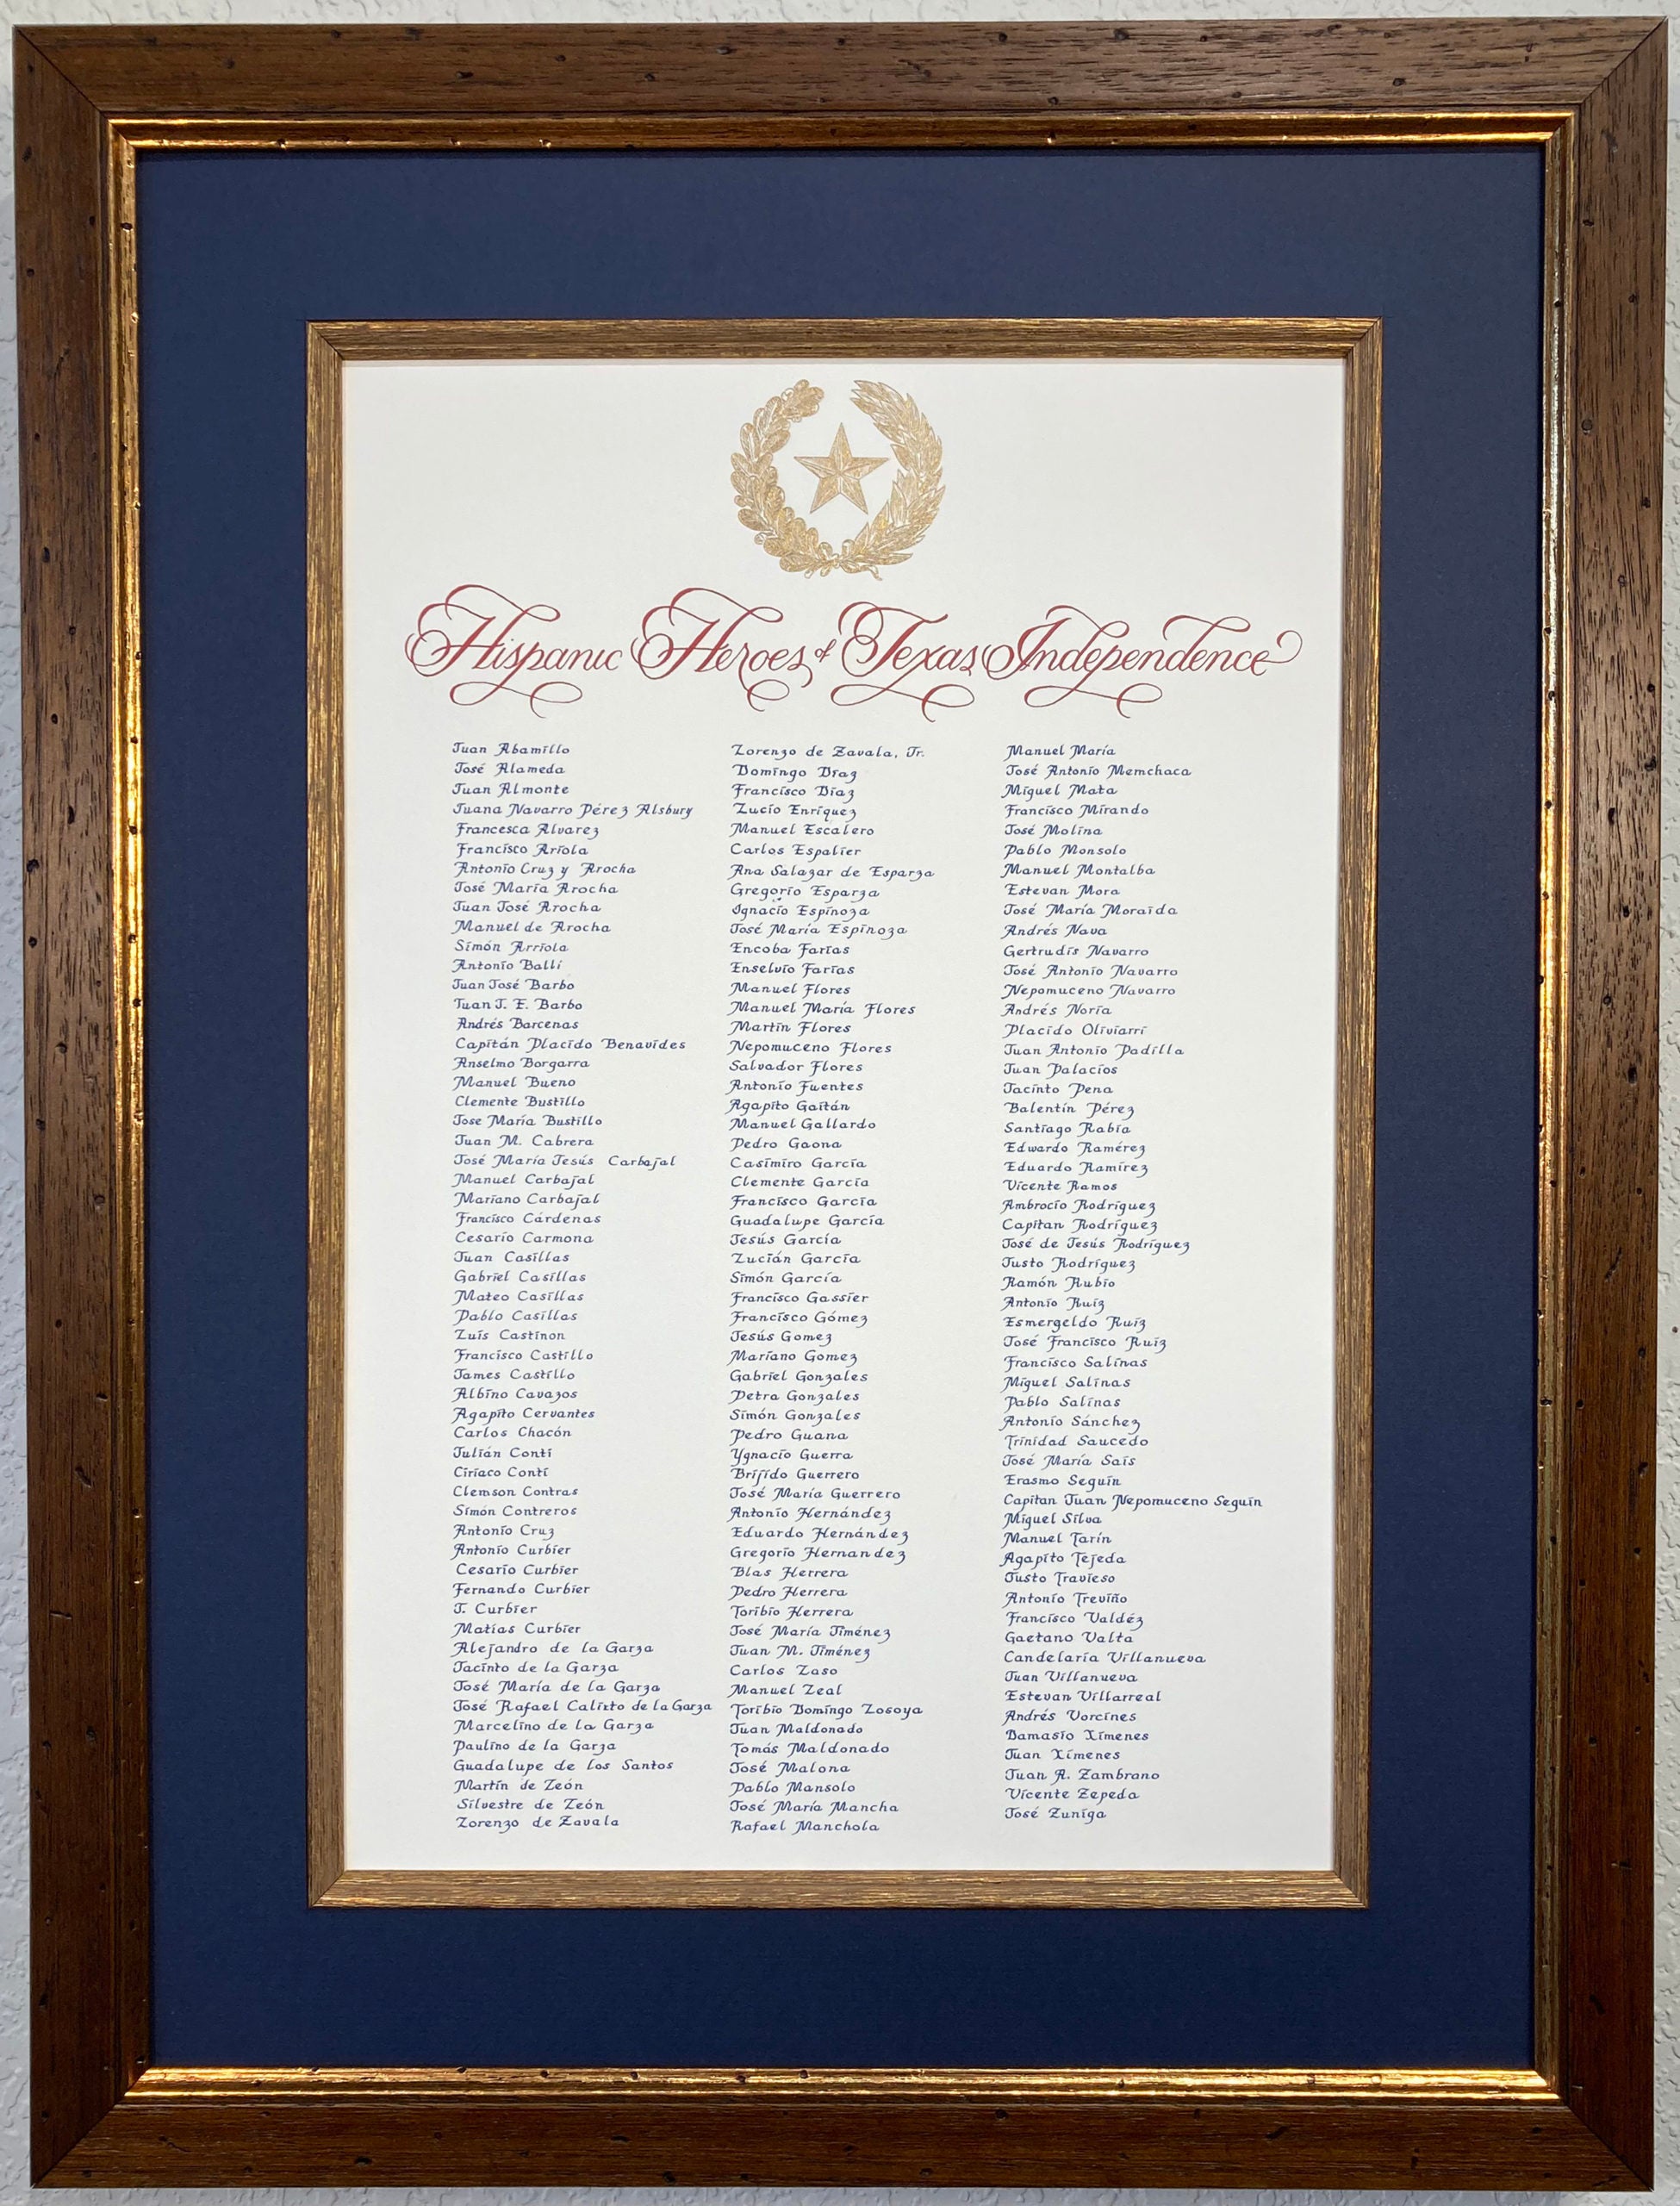 Hispanic Heroes of Texas Independence
Juan Abamillo
José Alameda
Juan Almonte
Juana Navarro Pérez Alsbury
Francesca Alvarez
Francisco Ariola
Antonio Cruz y Arocha
José María Arocha
Juan José Arocha
Manuel de Arocha
Simón Arriola
Antonio Balli
Juan José Barbo
Juan J. E. Barbo
Andrés Barcenas
Capitán Placido Benavides
Anselmo Borgarra
Manuel Bueno
Clemente Bustillo
Jose María Bustillo
Juan M. Cabrera
José María Jesús Carbajal
Manuel Carbajal
Mariano Carbajal
Francisco Cárdenas
Cesario Carmona
Juan Casillas
Gabriel Casillas
Mateo Casillas
Pablo Casillas
Luis Castinon
Francisco Castillo
James Castillo
Albino Cavazos
Agapito Cervantes
Carlos Chacón
Julián Conti
Ciriaco Conti
Clemson Contras
Simón Contreros
Antonio Cruz
Antonio Curbier
Cesario Curbier
Fernando Curbier
J. Curbier
Matías Curbier
Alejandro de la Garza
Jacinto de la Garza
José María de la Garza
José Rafael Calixto de la Garza
Marcelino de la Garza
Paulino de la Garza
Guadalupe de los Santos
Martín de León
Silvestre de León
Lorenzo de Zavala
Lorenzo de Zavala, Jr.
Domingo Díaz
Francisco Díaz
Lucio Enríquez
Manuel Escalero
Carlos Espalier
Ana Salazar de Esparza
Gregorio Esparza
Ignacio Espinoza
José María Espinoza
Encoba Farías
Enselvio Farías
Manuel Flores
Manuel María Flores
Martín Flores
Nepomuceno Flores
Salvador Flores
Antonio Fuentes
Agapito Gaitán
Manuel Gallardo
Pedro Gaona
Casimiro García
Clemente García
Francisco García
Guadalupe García
Jesús García
Lucián García
Simón García
Francisco Gassier
Francisco Gómez
Jesús Gomez
Mariano Gomez
Gabriel Gonzales
Petra Gonzales
Simón Gonzales
Pedro Guana
Ygnacio Guerra
Brijido Guerrero
José María Guerrero
Antonio Hernández
Eduardo Hernández
Gregorio Hernandez
Blas Herrera
Pedro Herrera
Toribio Herrera
José María Jiménez
Juan M. Jiménez
Carlos Laso
Manuel Leal
Toribio Domingo Losoya
Juan Maldonado
Tomás Maldonado
José Malona
Pablo Mansolo
José María Mancha
Rafael Manchola
Manuel María
José Antonio Memchaca
Miguel Mata
Francisco Mirando
José Molina
Pablo Monsolo
Manuel Montalba
Estevan Mora
José María Moraida
Andrés Nava
Gertrudis Navarro
José Antonio Navarro
Nepomuceno Navarro
Andrés Noria
Placido Oliviarri
Juan Antonio Padilla
Juan Palacios
Jacinto Pena
Balentín Pérez
Santiago Rabia
Edwardo Ramérez
Eduardo Ramírez
Vicente Ramos
Ambrocio Rodríguez
Capitan Rodríguez
José de Jesús Rodríguez
Justo Rodríguez
Ramón Rubio
Antonio Ruiz
Esmergeldo Ruiz
José Francisco Ruiz
Francisco Salinas
Miguel Salinas
Pablo Salinas
Antonio Sánchez
Trinidad Saucedo
José María Sais
Erasmo Seguin
Capitan Juan Nepomuceno Seguin
Miguel Silva
Manuel Tarín
Agapito Tejeda
Justo Travieso
Antonio Treviño
Francisco Valdéz
Gaetano Valta
Candelaría Villanueva
Juan Villanueva
Estevan Villarreal
Andrés Vorcines
Damasio Ximenes
Juan Ximenes
Juan A. Zambrano
Vicente Zepeda
José Zuniga